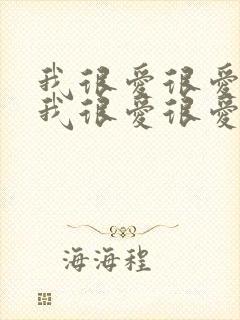 我很爱很爱
我很爱很爱
海海程